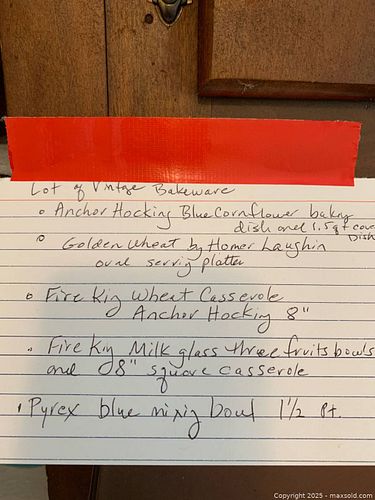 Lot of Vintge Bakeware
o Anchor Hocking Blue Cornflower baky
dish and 1.5 qt cove
Dish
o Golden Wheat by Homer Laughin
oval servig platter
o Fire Kig Wheat Casserole
Anchor Hockig 8"
• Fire Kig Milk glass three fruits bowls
and 8" square casserole
• Pyrex blue mixig bowl 1 1/2 pt.
Copyright © 2025 - maxsold.com